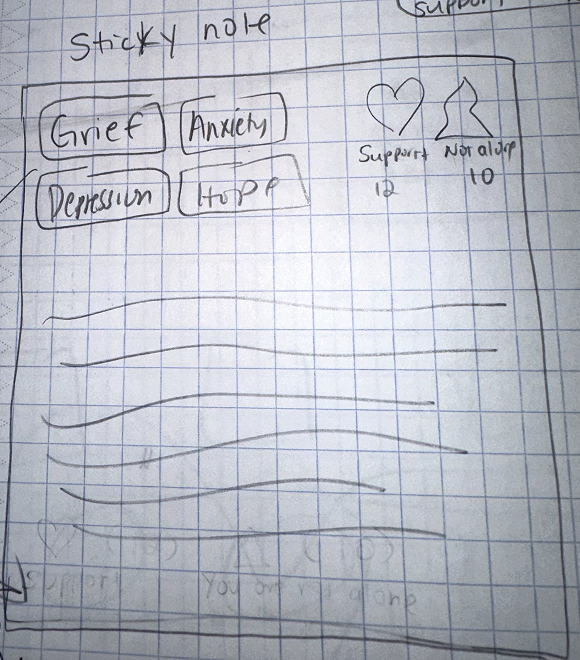 support
Sticky note
Grief Anxiety
Depression Hope
Support Not alone
12 10
Support You are not alone